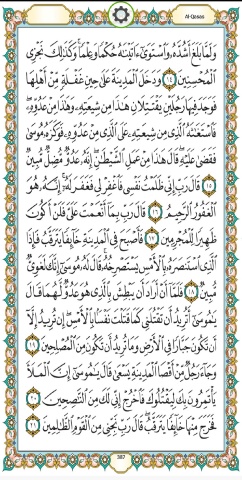 Al-Qasas
وَلَمَّا بَلَغَ أَشُدَّهُۥ وَٱسْتَوَىٰٓ ءَاتَيْنَٰهُ حُكْمًا وَعِلْمًا ۚ وَكَذَٰلِكَ نَجْزِى
ٱلْمُحْسِنِينَ ١٤ وَدَخَلَ ٱلْمَدِينَةَ عَلَىٰ حِينِ غَفْلَةٍ مِّنْ أَهْلِهَا
فَوَجَدَ فِيهَا رَجُلَيْنِ يَقْتَتِلَانِ هَٰذَا مِن شِيعَتِهِۦ وَهَٰذَا مِنْ عَدُوِّهِۦ ۖ
فَٱسْتَغَٰثَهُ ٱلَّذِى مِن شِيعَتِهِۦ عَلَى ٱلَّذِى مِنْ عَدُوِّهِۦ فَوَكَزَهُۥ مُوسَىٰ
فَقَضَىٰ عَلَيْهِ ۖ قَالَ هَٰذَا مِنْ عَمَلِ ٱلشَّيْطَٰنِ ۖ إِنَّهُۥ عَدُوٌّ مُّضِلٌّ مُّبِينٌ
١٥ قَالَ رَبِّ إِنِّى ظَلَمْتُ نَفْسِى فَٱغْفِرْ لِى فَغَفَرَ لَهُۥٓ ۚ إِنَّهُۥ هُوَ
ٱلْغَفُورُ ٱلرَّحِيمُ ١٦ قَالَ رَبِّ بِمَآ أَنْعَمْتَ عَلَىَّ فَلَنْ أَكُونَ
ظَهِيرًا لِّلْمُجْرِمِينَ ١٧ فَأَصْبَحَ فِى ٱلْمَدِينَةِ خَآئِفًا يَتَرَقَّبُ فَإِذَا
ٱلَّذِى ٱسْتَنصَرَهُۥ بِٱلْأَمْسِ يَسْتَصْرِخُهُۥ ۚ قَالَ لَهُۥ مُوسَىٰٓ إِنَّكَ لَغَوِىٌّ
مُّبِينٌ ١٨ فَلَمَّآ أَنْ أَرَادَ أَن يَبْطِشَ بِٱلَّذِى هُوَ عَدُوٌّ لَّهُمَا قَالَ
يَٰمُوسَىٰٓ أَتُرِيدُ أَن تَقْتُلَنِى كَمَا قَتَلْتَ نَفْسًۢا بِٱلْأَمْسِ ۖ إِن تُرِيدُ إِلَّآ
أَن تَكُونَ جَبَّارًا فِى ٱلْأَرْضِ وَمَا تُرِيدُ أَن تَكُونَ مِنَ ٱلْمُصْلِحِينَ ١٩
وَجَآءَ رَجُلٌ مِّنْ أَقْصَا ٱلْمَدِينَةِ يَسْعَىٰ قَالَ يَٰمُوسَىٰٓ إِنَّ ٱلْمَلَأَ
يَأْتَمِرُونَ بِكَ لِيَقْتُلُوكَ فَٱخْرُجْ إِنِّى لَكَ مِنَ ٱلنَّٰصِحِينَ ٢٠
فَخَرَجَ مِنْهَا خَآئِفًا يَتَرَقَّبُ ۖ قَالَ رَبِّ نَجِّنِى مِنَ ٱلْقَوْمِ ٱلظَّٰلِمِينَ ٢١
387